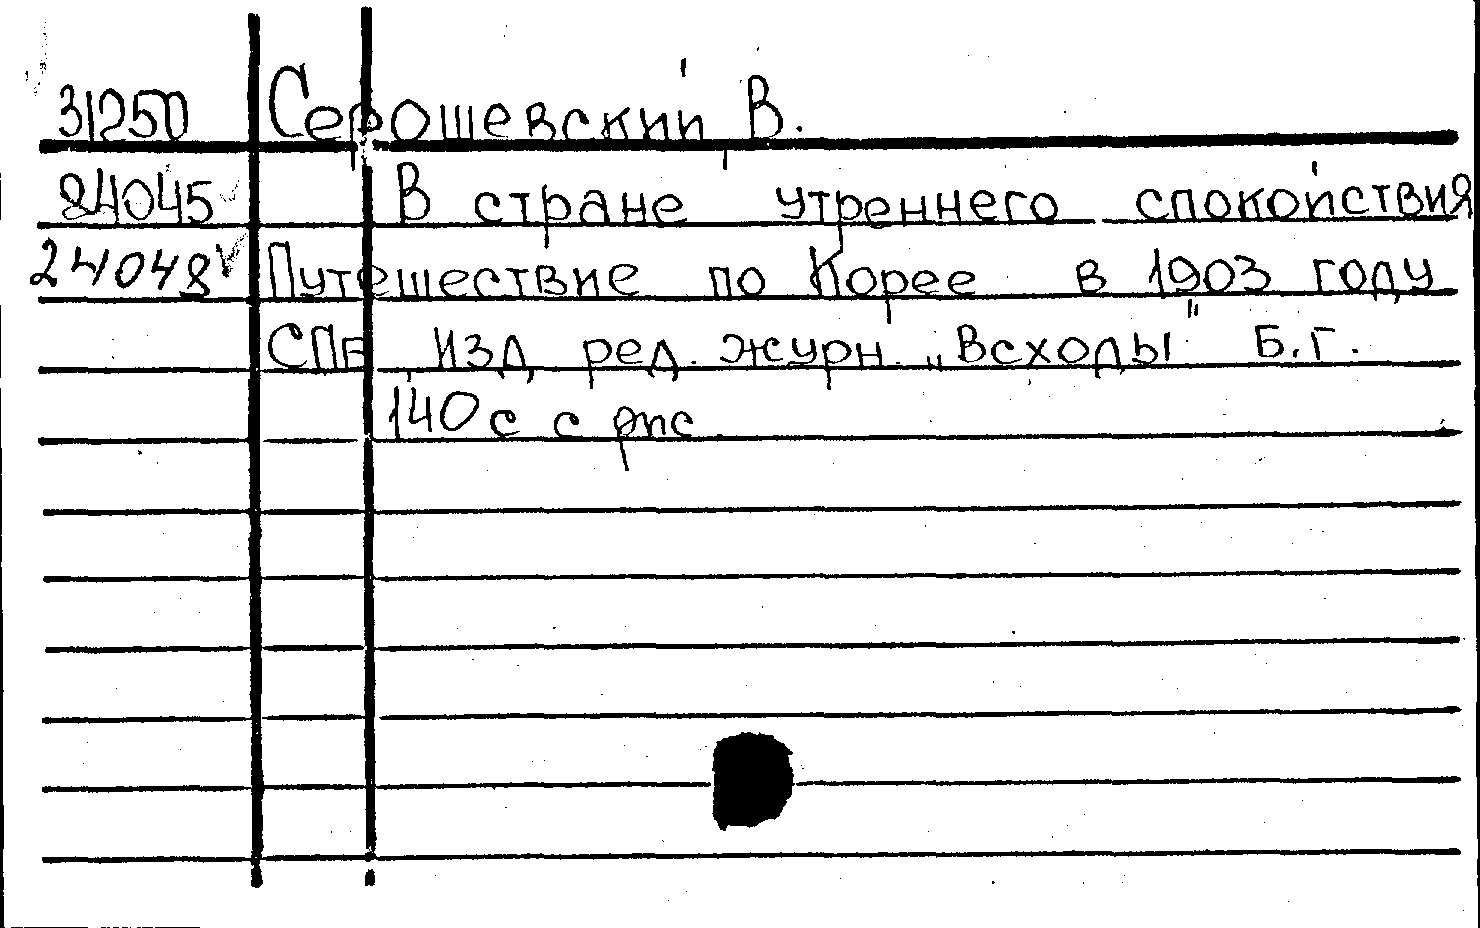 31250 Серошевский В.
24045 В стране утреннего спокойствия
24048 Путешествие по Корее в 1903 году
СПб Изд ред. журн. „Всходы" Б.г.
140 с с рис